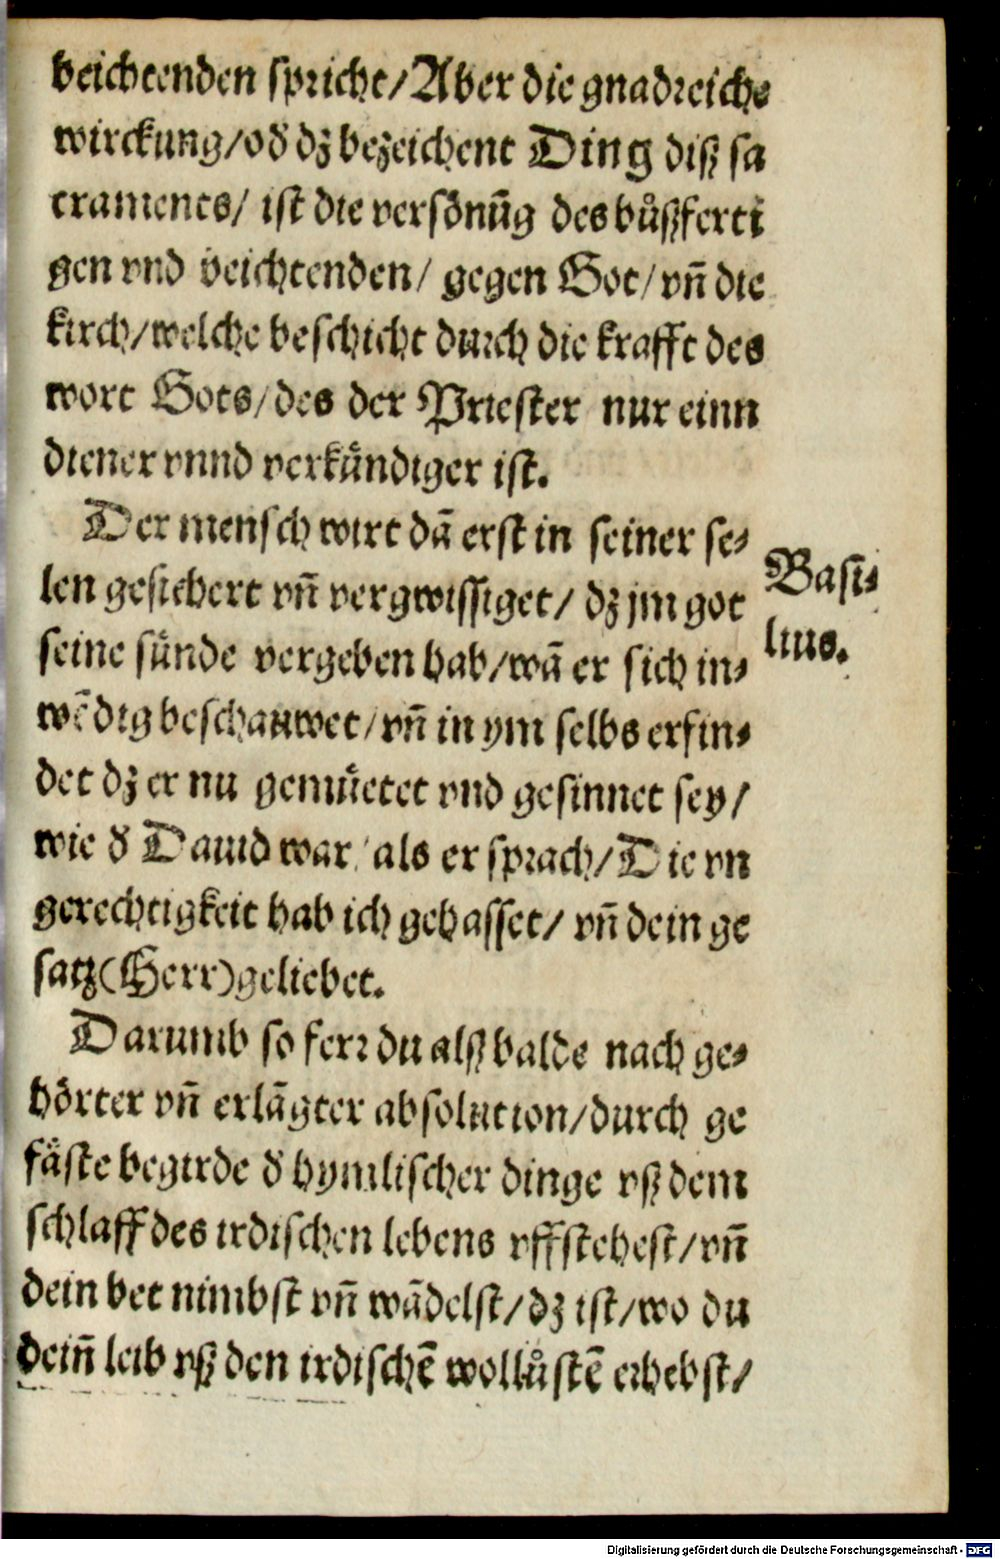 beichtenden spricht/Aber die gnadreiche
wirckung/od̄ dz bezeichent Ding diß sa
craments/ ist die versönūg des bůßferti
gen vnd beichtenden/ gegen Got/ vñ die
kirch/welche beschicht durch die krafft des
wort Gots/des der Priester nur einn
diener vnnd verkündiger ist.
Der mensch wirt dā erst in seiner se⸗
len gesichert vñ vergwissiget/ dz jm got
seine sünde vergeben hab/wā er sich in⸗
wēdig beschauwet/vñ in ym selbs erfin⸗
det dz er nu gemüetet vnd gesinnet sey/
wie d̄ Dauid war/als er sprach/Die vn
gerechtigkeit hab ich gehasset/ vñ dein ge
satz(Herr)geliebet.
Basi⸗
lius.
Darumb so ferr du alßbalde nach ge⸗
hörter vñ erlāgter absolution/durch ge
fäste begirde d̄ hymlischer dinge vß dem
schlaff des irdischen lebens vffstehest/vñ
dein bet nimbst vñ wādelst/dz ist/wo du
deiñ leib vß den irdischē wollůstē erhebst/
Digitalisierung gefördert durch die Deutsche Forschungsgemeinschaft - DFG